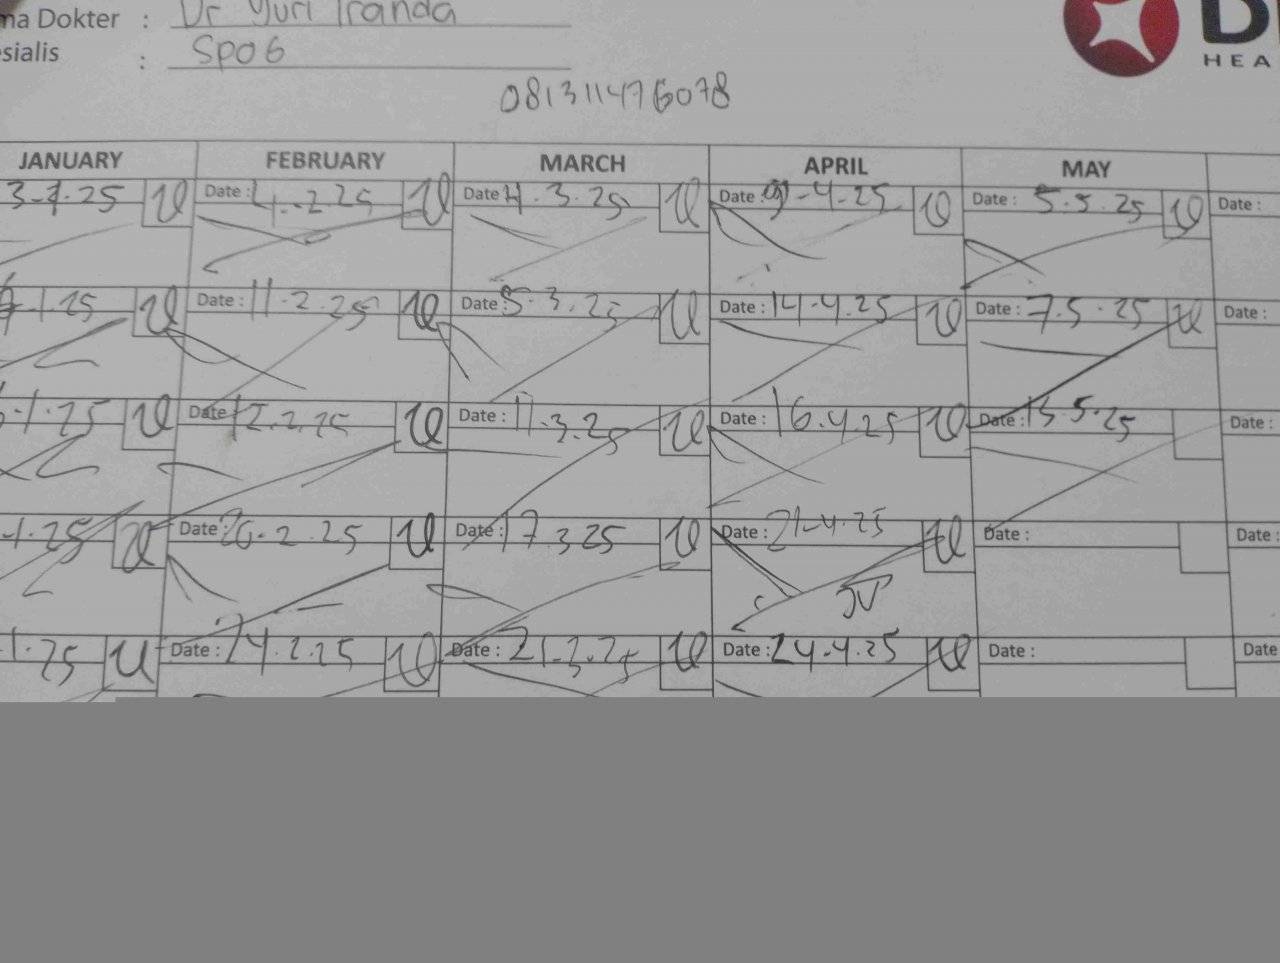 ma Dokter : Dr Yuri Iranda
esialis : SpOG
081311476078
HEA
JANUARY FEBRUARY MARCH APRIL MAY
3-1-25 Date : 4.-2 25 Date 4.3.25 Date : 9-4-25 Date : 5.5.25 Date :
-1.25 Date : 11-2.25 Date : 5-3.25 Date : 14-4.25 Date : 7.5.25 Date :
-1.25 Date 12.2.25 Date : 11-3.25 Date : 16.4.25 Date : 15.5.25 Date :
-1.25 Date 20-2.25 Date : 17.3 25 Date : 21-4.25 Date : Date :
1.25 Date : 24.2.25 Date : 21-3.25 Date : 24-4.25 Date : Date